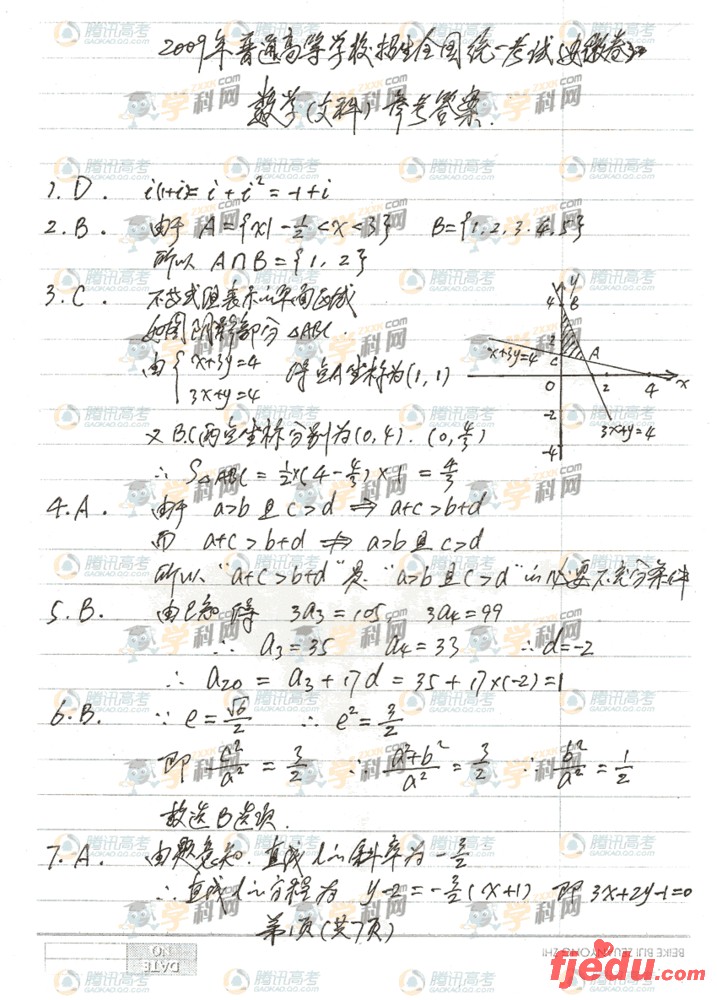 2009年普通高等学校招生全国统一考试(安徽卷)
数学(文科)参考答案.
1. D. i(1+i)= i + i² = -1+i
2. B. 由于 A={x|-1/2<x<3} B={1,2,3.4,5}
所以 A∩B={1,2}
3. C 不等式组表示的平面区域
如图阴影部分△ABC.
由 { x+3y=4
3x+y=4 得点A坐标为(1,1)
又B.C两点坐标分别为(0,4).(0,4/3)
∴ S△ABC = 1/2×(4-4/3)×1 = 4/3
y
4
B
2
x+3y=4
C
A
0
2
4
x
-2
3x+y=4
-4
4. A. 由于 a>b且c>d ⇒ a+c>b+d
而 a+c>b+d ⇏ a>b且c>d
所以"a+c>b+d"是"a>b且c>d"的必要不充分条件
5. B. 由已知得 3a₃=105 3a₄=99
∴ a₃=35 a₄=33 ∴ d=-2
∴ a₂₀ = a₃+17d = 35+17×(-2)=1
6. B. ∵ e=√6/2 ∴ e²=3/2
即 c²/a² = 3/2 ∴ (a²+b²)/a² = 3/2 ∴ b²/a² = 1/2
故选B选项.
7. A. 由题意知.直线l的斜率为 -3/2
∴直线l的方程为 y-2=-3/2(x+1) 即 3x+2y-1=0
第1页(共7页)
DATE
NO
BEIKE BIJI ZHUANYONG ZHI
fjedu.com
腾讯高考
GAOKAO.QQ.COM
学科网
ZXXK.com